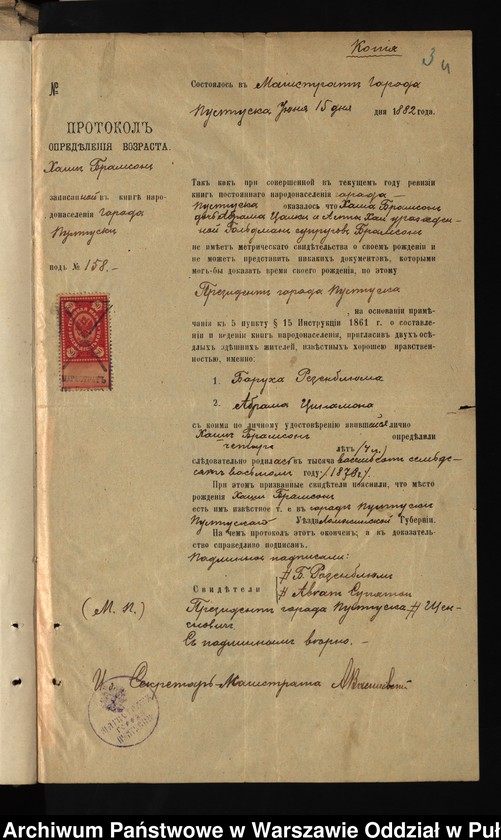 Копія
3
№
ПРОТОКОЛЪ
ОПРЕДѢЛЕНІЯ ВОЗРАСТА.
Хаши Брамсонъ
записанной въ книгѣ наро-
донаселенія города
Пултуска
подъ № 158.-
Состоялось въ Магистратѣ города
Пултуска Іюня 15 дня дня 1882 года.
Такъ какъ при совершенной въ текущемъ году ревизіи
книгъ постояннаго народонаселенія города
Пултуска оказалось что Хаша Брамсонъ
дочь Абрама и
Гольдманъ супруговъ Брамсонъ
не имѣетъ метрическаго свидѣтельства о своемъ рожденіи и
не можетъ представить никакихъ документовъ, которыми
могъ-бы доказать время своего рожденія, по этому
Президентъ города Пултуска
, на основаніи примѣ-
чанія къ 5 пункту § 15 Инструкціи 1861 г. о составле-
ніи и веденіи книгъ народонаселенія, пригласивъ двухъ осѣд-
лыхъ здѣшнихъ жителей, извѣстныхъ хорошею нравствен-
ностью, именно:
1. Боруха Розенблюма
2. Абрама Цинамона
съ коими по личному удостовѣренію явившейся лично
Хаши Брамсонъ опредѣлили
четыре лѣтъ /4 л./
слѣдовательно родилась въ тысяча восемьсотъ семьде-
сятъ восьмомъ году /1878 г./
При этомъ призванные свидѣтели пояснили, что мѣсто
рожденія Хаши Брамсонъ
есть имъ извѣстное т. е. въ городѣ Пултускѣ
Пултускаго Уѣзда Ломжинской Губерніи.
На чемъ протоколъ этотъ оконченъ, а въ доказатель-
ство справедливо подписанъ.
Подлинное подписали:
Свидѣтели
Б. Розенблюмъ
(М. П.)
Президентъ города Пултуска
Съ подлиннымъ вѣрно. -
И. д. Секретаръ Магистрата
Archiwum Państwowe w Warszawie Oddział w Puł